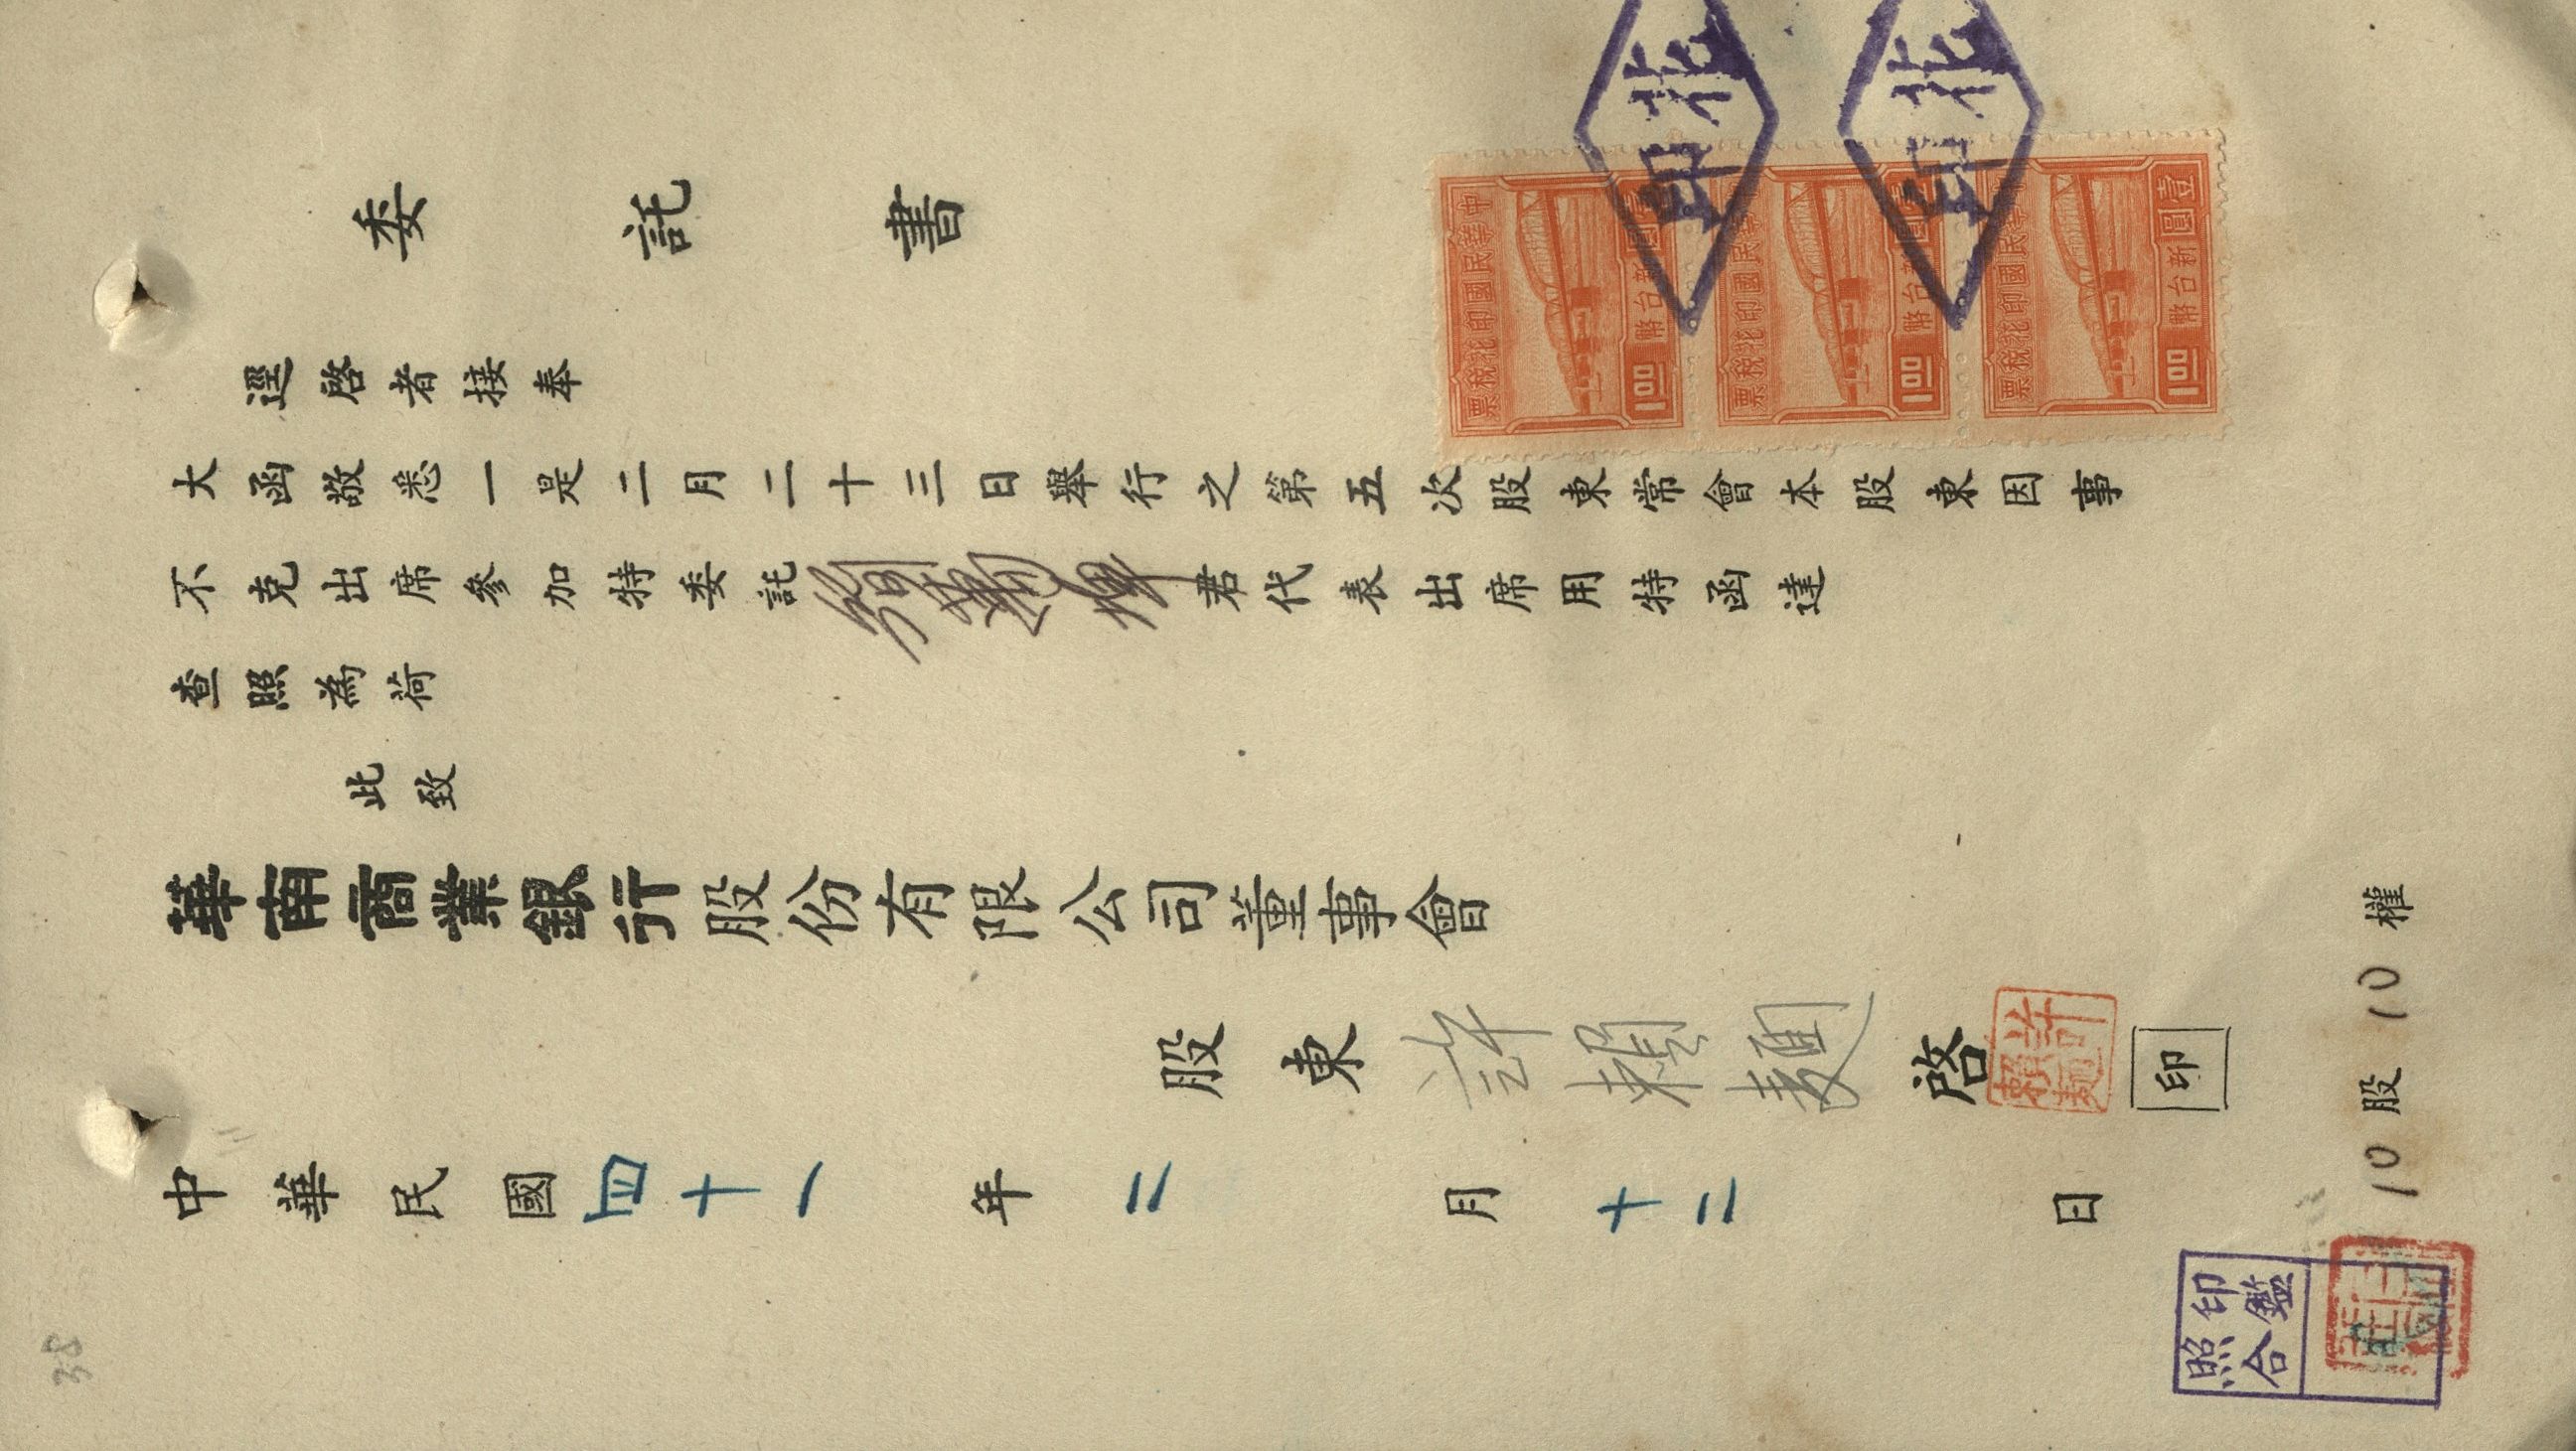 委託書
逕啓者接奉
大函敬悉一是二月二十三日舉行之第五次股東常會本股東因事
不克出席參加特委託 君代表出席用特函達
查照為荷
此致
華南商業銀行股份有限公司董事會
股東 許賴 啓
印
中華民國四十一年二月十二日
10股10權
中華民國印花稅票
新台幣壹圓
1.00
中華民國印花稅票
新台幣壹圓
1.00
中華民國印花稅票
新台幣壹圓
1.00
北印
北印
印鑑
照合
38